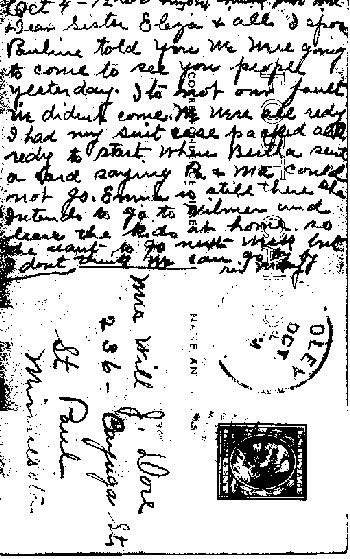 Oct 4 - 12
Dear Sister Eliza & all I spose
Pauline told you we was going
to come to see you people
yesterday. Its not our fault
we dident come. We were all redy
I had my suit case packed all
redy to start when Bertha sent
a card saying Pa & Ma could
not go. Emma is still there she
Intends to go to Wilmer and
leave the kids at home. so
he want to go next week but
I dont think we can go
Mrs Will J. Dore
236 - Cayuga St,
St. Paul
Minnesota
OCT